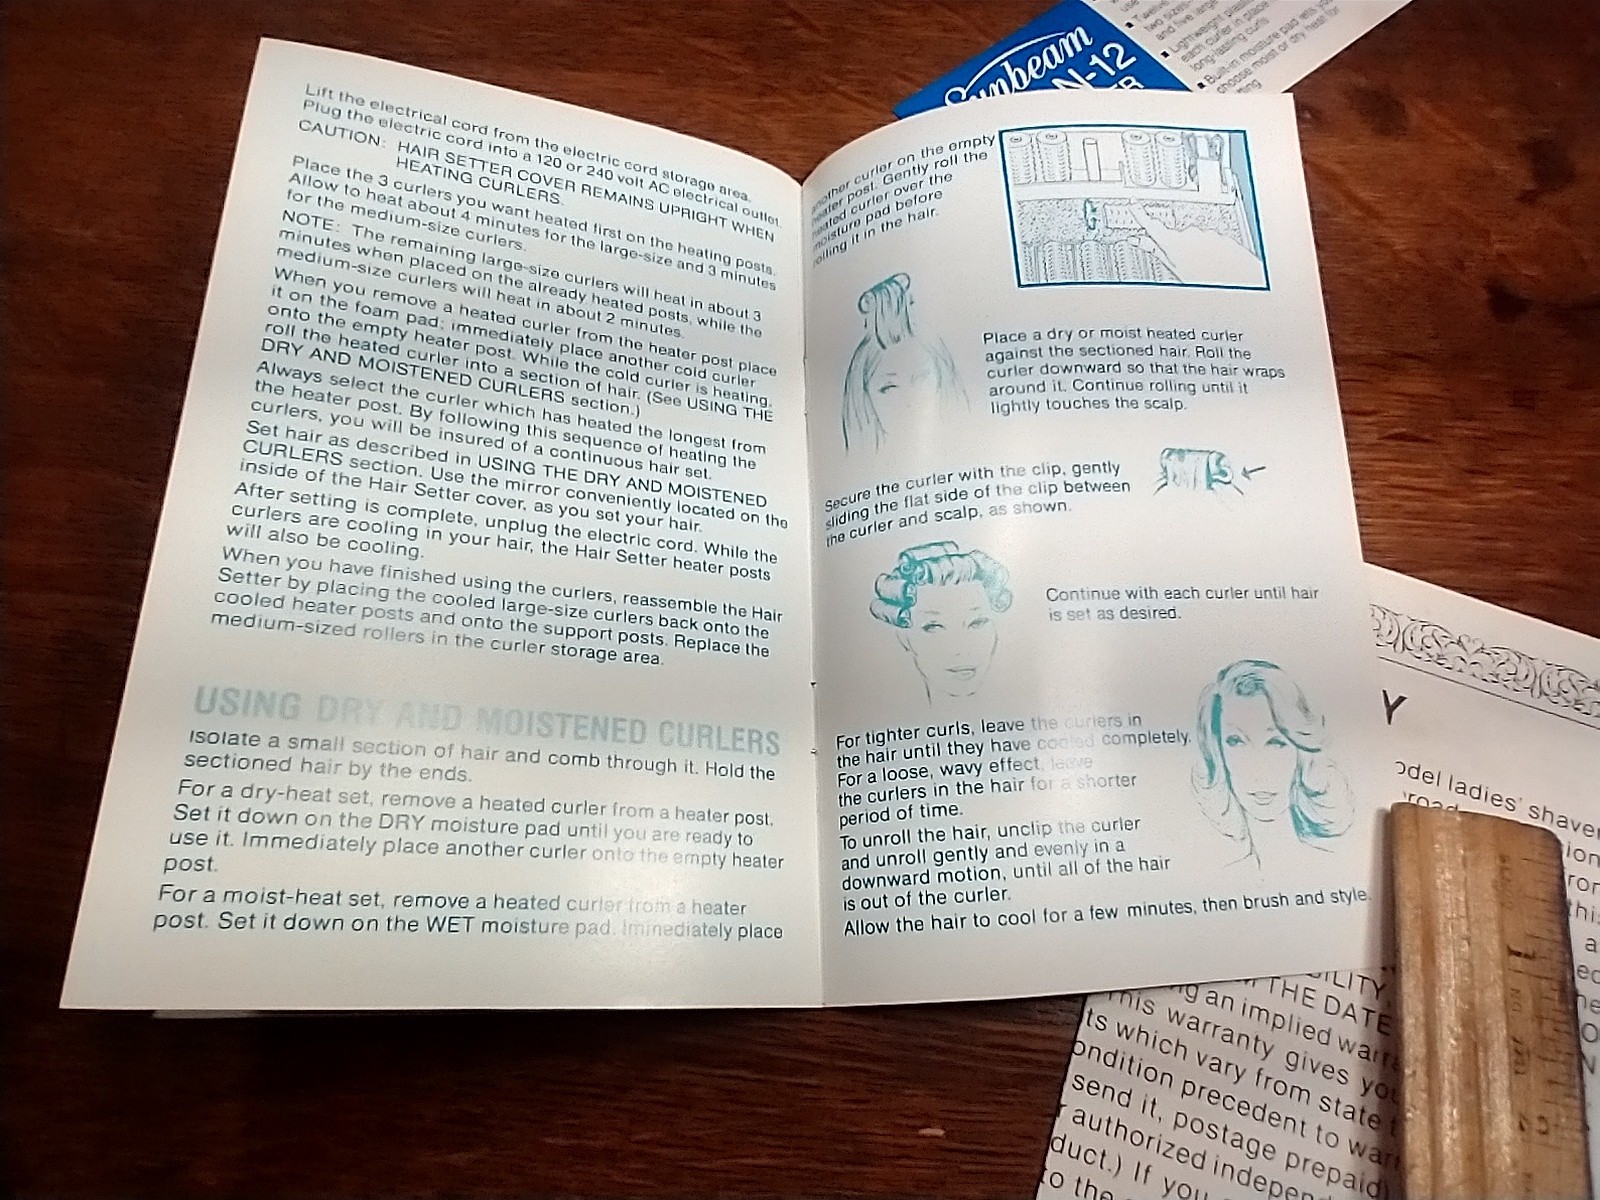 Lift the electrical cord from the electric cord storage area.
Plug the electric cord into a 120 or 240 volt AC electrical outlet.
CAUTION: HAIR SETTER COVER REMAINS UPRIGHT WHEN
HEATING CURLERS.
Place the 3 curlers you want heated first on the heating posts.
Allow to heat about 4 minutes for the large-size and 3 minutes
for the medium-size curlers.
NOTE: The remaining large-size curlers will heat in about 3
minutes when placed on the already heated posts, while the
medium-size curlers will heat in about 2 minutes.
When you remove a heated curler from the heater post place
it on the foam pad; immediately place another cold curler
onto the empty heater post. While the cold curler is heating,
roll the heated curler into a section of hair. (See USING THE
DRY AND MOISTENED CURLERS section.)
Always select the curler which has heated the longest from
the heater post. By following this sequence of heating the
curlers, you will be insured of a continuous hair set.
Set hair as described in USING THE DRY AND MOISTENED
CURLERS section. Use the mirror conveniently located on the
inside of the Hair Setter cover, as you set your hair.
After setting is complete, unplug the electric cord. While the
curlers are cooling in your hair, the Hair Setter heater posts
will also be cooling.
When you have finished using the curlers, reassemble the Hair
Setter by placing the cooled large-size curlers back onto the
cooled heater posts and onto the support posts. Replace the
medium-sized rollers in the curler storage area.
USING DRY AND MOISTENED CURLERS
Isolate a small section of hair and comb through it. Hold the
sectioned hair by the ends.
For a dry-heat set, remove a heated curler from a heater post.
Set it down on the DRY moisture pad until you are ready to
use it. Immediately place another curler onto the empty heater
post.
For a moist-heat set, remove a heated curler from a heater
post. Set it down on the WET moisture pad. Immediately place
another curler on the empty
heater post. Gently roll the
heated curler over the
moisture pad before
rolling it in the hair.
Place a dry or moist heated curler
against the sectioned hair. Roll the
curler downward so that the hair wraps
around it. Continue rolling until it
lightly touches the scalp.
Secure the curler with the clip, gently
sliding the flat side of the clip between
the curler and scalp, as shown.
Continue with each curler until hair
is set as desired.
For tighter curls, leave the curlers in
the hair until they have cooled completely.
For a loose, wavy effect, leave
the curlers in the hair for a shorter
period of time.
To unroll the hair, unclip the curler
and unroll gently and evenly in a
downward motion, until all of the hair
is out of the curler.
Allow the hair to cool for a few minutes, then brush and style.
Sunbeam
N-12
two sizes
and five large
Lightweight
each curler in place
long-lasting curls
Built-in moisture pad lets you
choose moist or dry heat for
Y
odel ladies' shaver
THE DATE
ng an implied
This warranty gives you
ts which vary from state
ondition precedent to
send it, postage prepaid
authorized
duct.) If you
to the